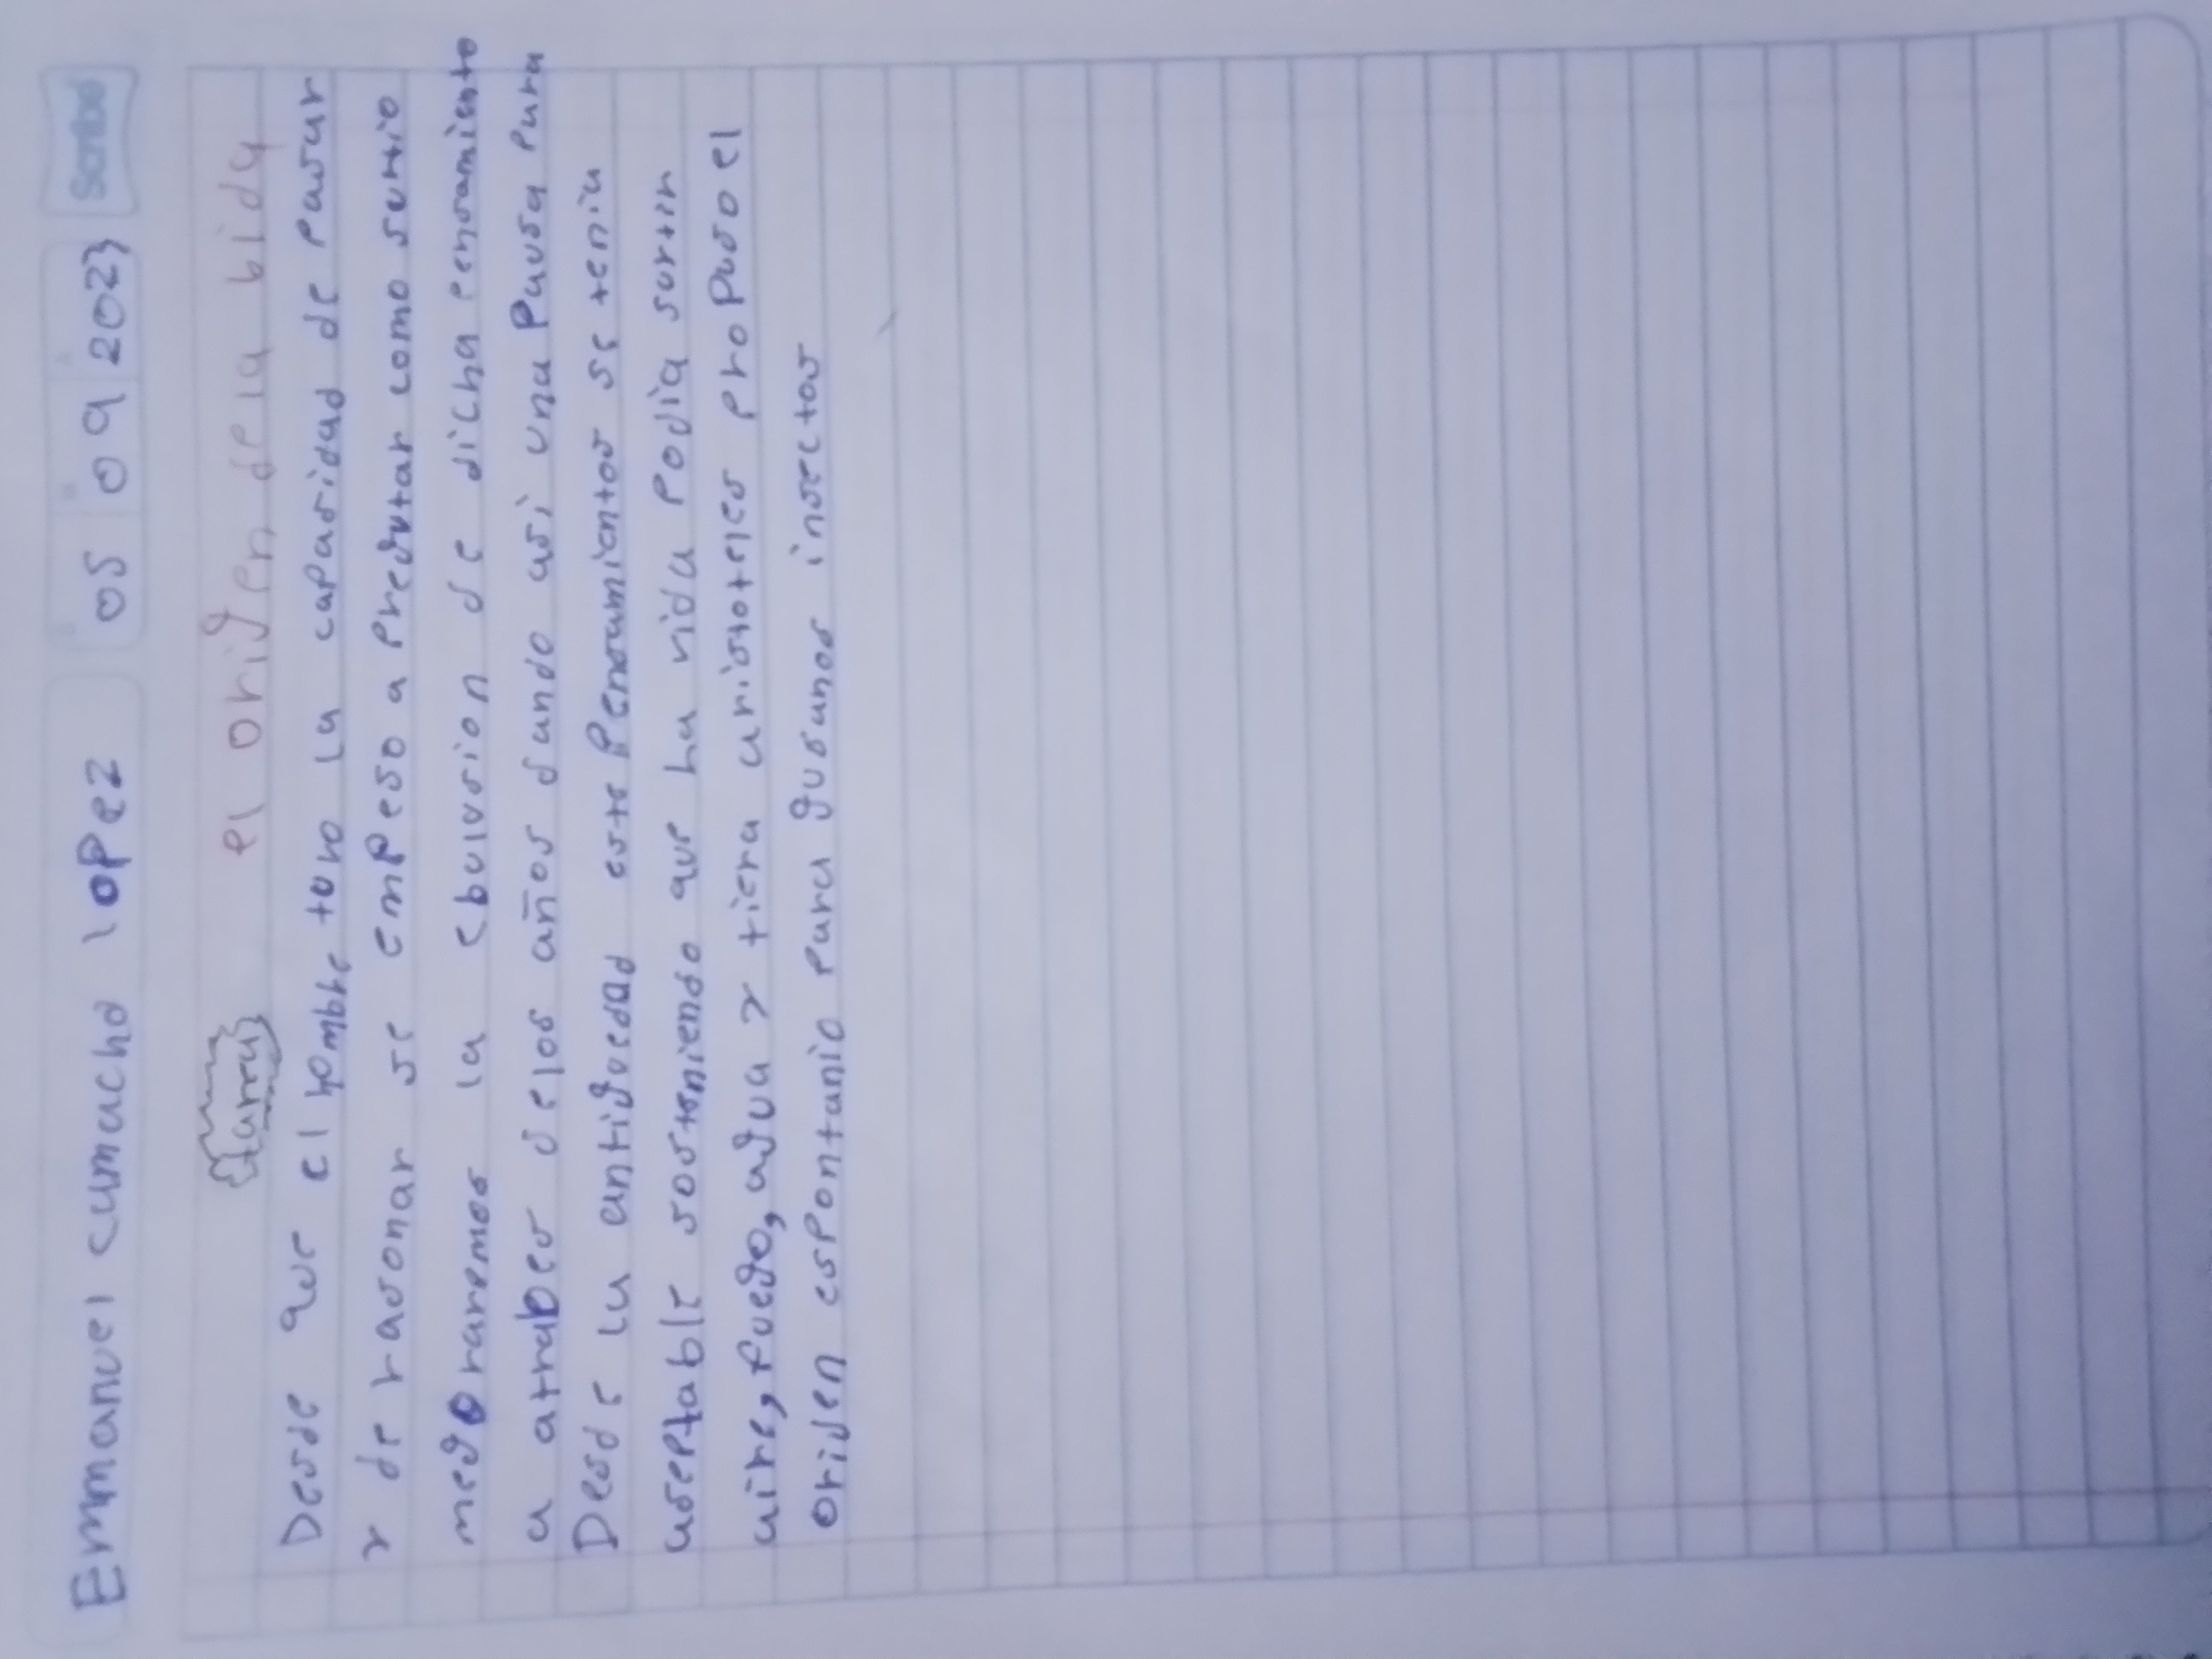 Emmanuel cumacho lopez 05 09 2023 Scribe
tarea el origen dela bida
Desde que el hombre tubo la capasidad de pasar
y de rasonar se empeso a pregutar como surtio
megoraremos la ebulusion de dicha pensamiento
a atrabes delos años dando asi una Pausa para
Desde la antiguedad este Pensamientos se tenia
aseptable sosteniendo que ha vida Podia surtir
aire, fuego, agua y tiera aristoteles propuso el
orijen espontanio para gusanos insectos